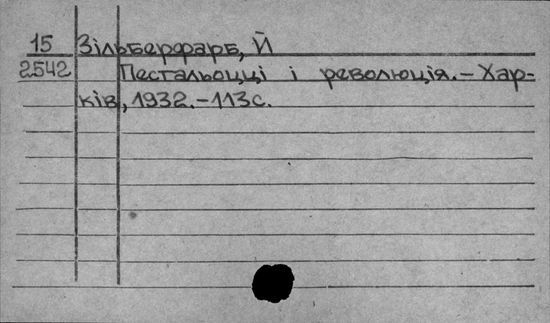 15 Зільберфарб, Й
2542 Пестальоцці і революція. – Хар-
ків, 1932. – 113с.